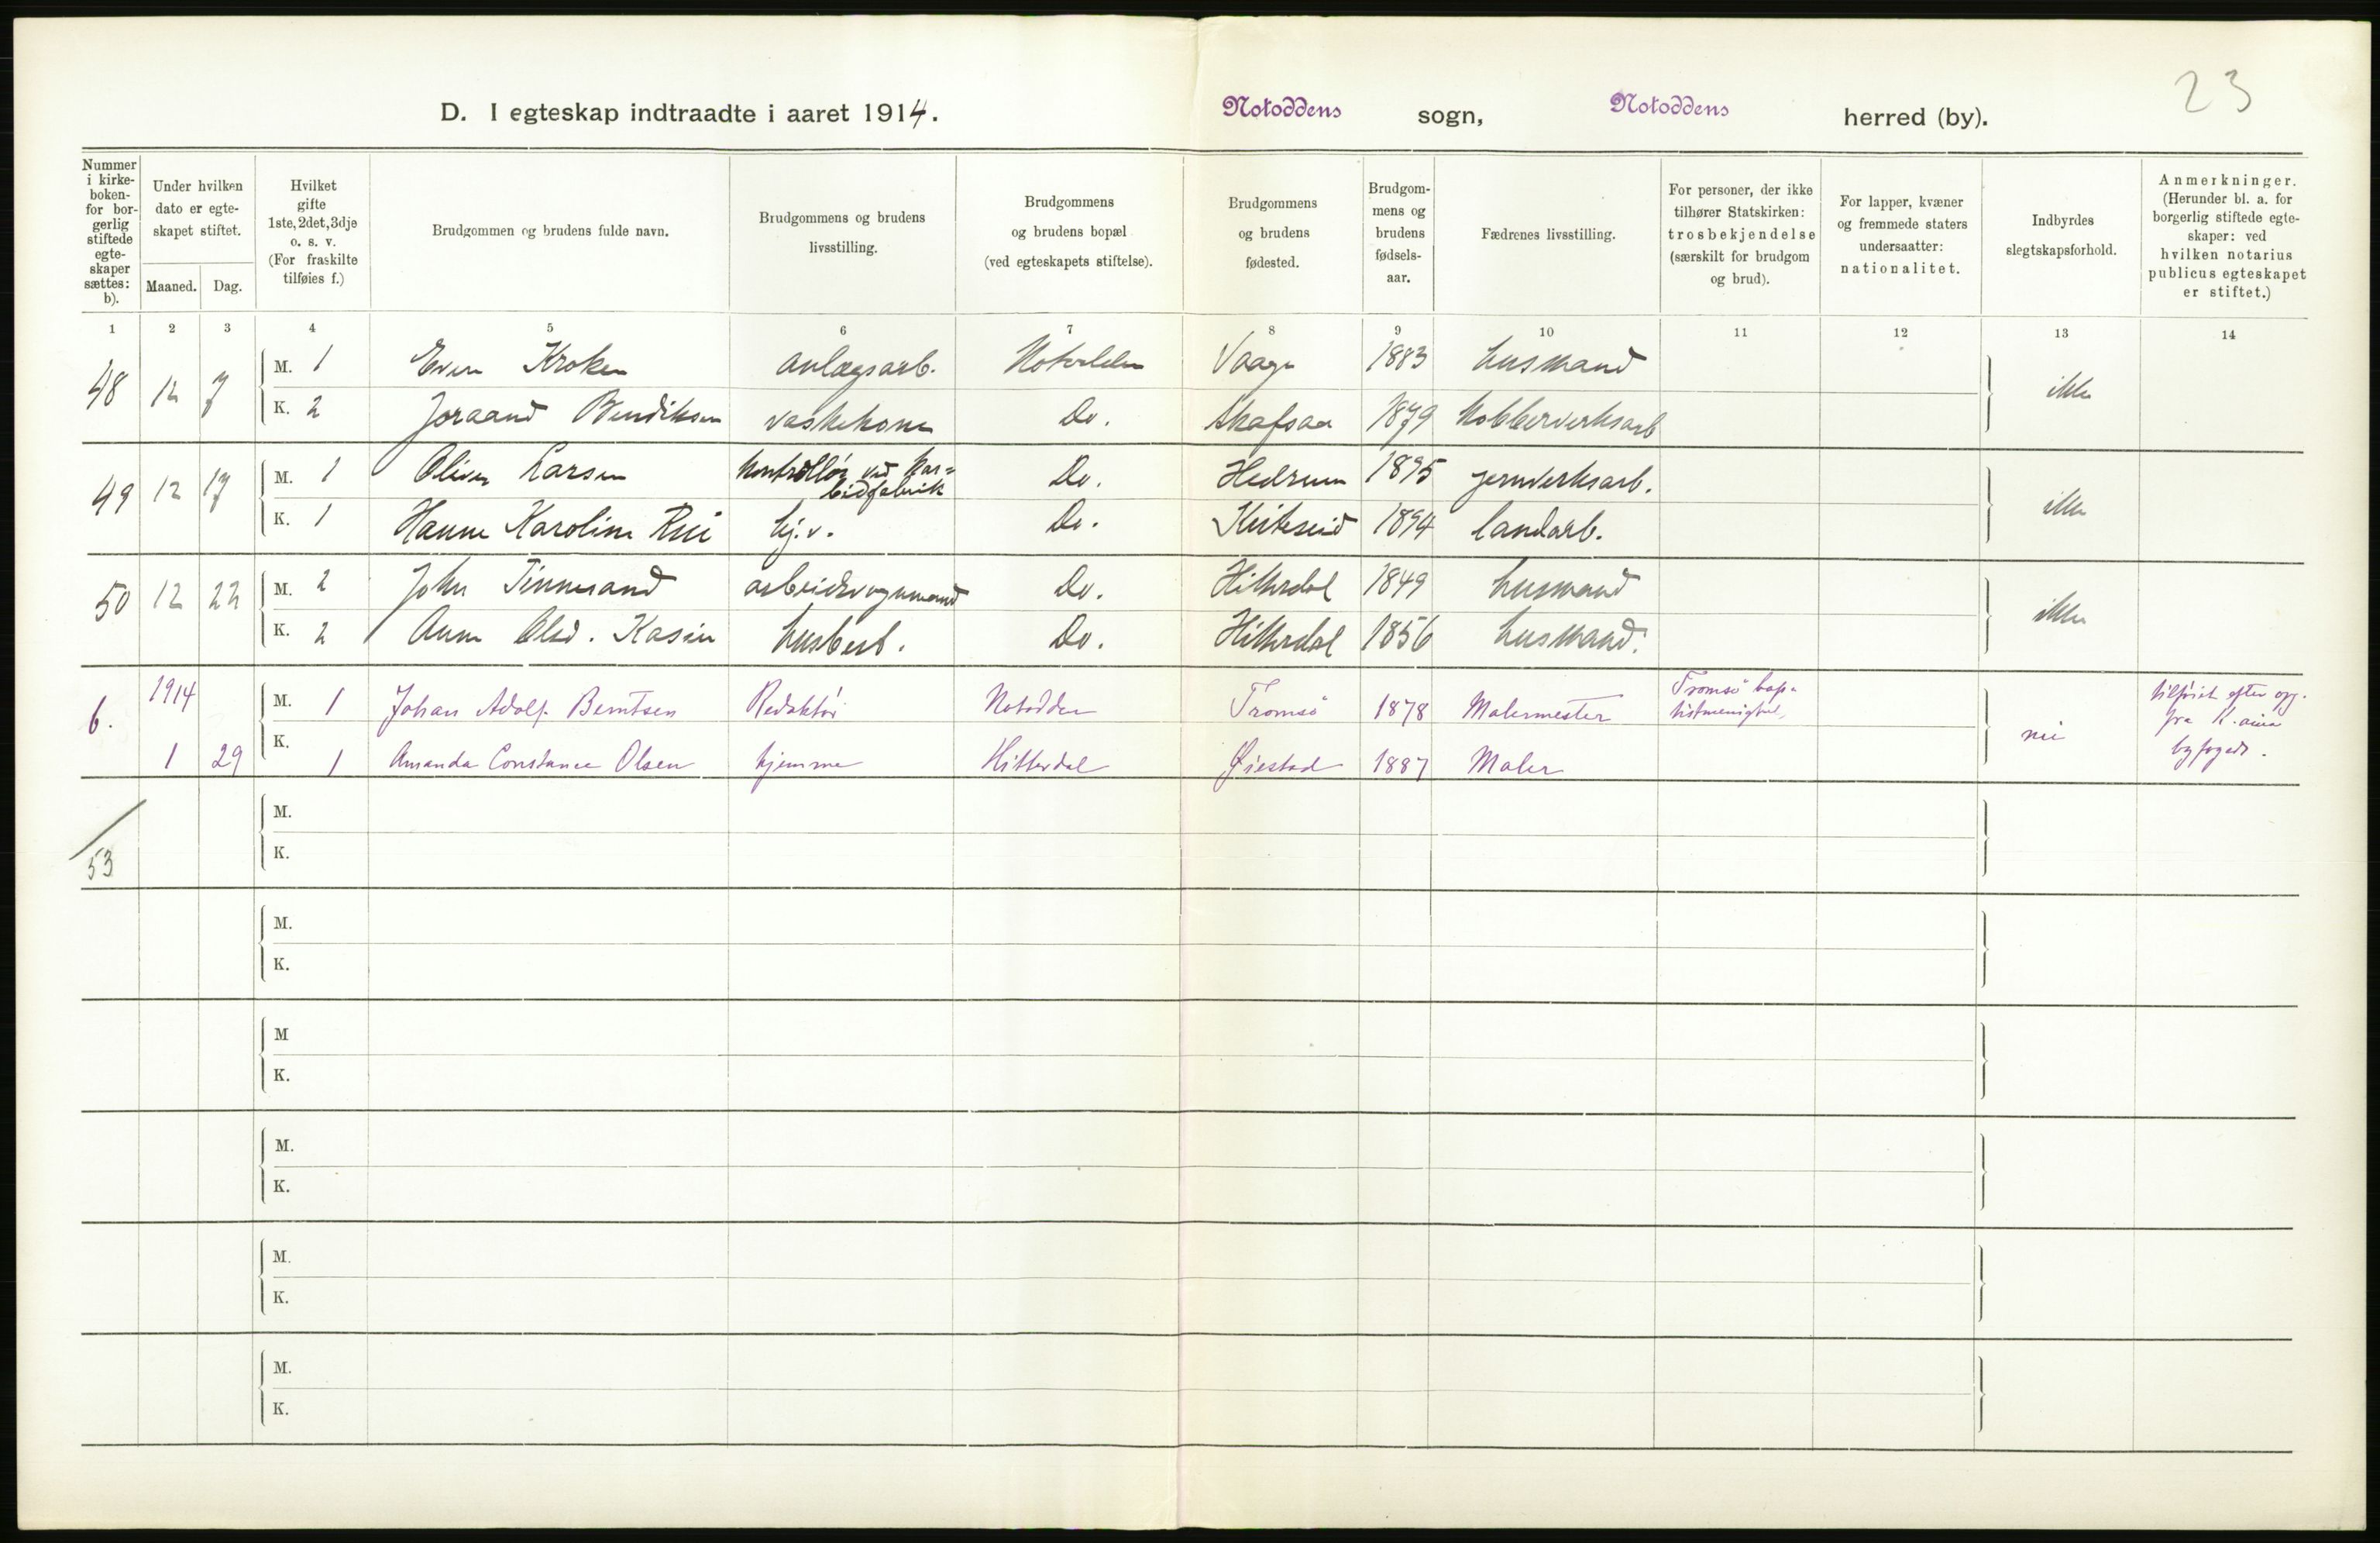 23
D. I egteskap indtraadte i aaret 1914. Notoddens sogn, Notoddens herred (by).
Nummer i kirke-boken- for bor-gerlig stiftede egte-skaper sættes: b).
Under hvilken dato er egte-skapet stiftet.
Maaned. Dag.
Hvilket gifte 1ste, 2det, 3dje o. s. v. (For fraskilte tilføies f.)
Brudgommen og brudens fulde navn.
Brudgommens og brudens livsstilling.
Brudgommens og brudens bopæl (ved egteskapets stiftelse).
Brudgommens og brudens fødested.
Brudgom-mens og brudens fødsels-aar.
Fædrenes livsstilling.
For personer, der ikke tilhører Statskirken: trosbekjendelse (særskilt for brudgom og brud).
For lapper, kvæner og fremmede staters undersaatter: nationalitet.
Indbyrdes slegtskapsforhold.
Anmerkninger. (Herunder bl. a. for borgerlig stiftede egte-skaper: ved hvilken notarius publicus egteskapet er stiftet.)
1 2 3 4 5 6 7 8 9 10 11 12 13 14
48 12 7 M. 1 Even Kroken anlægsarb. Notodden Vaage 1883 husmand ikke
K. 2 Joraand Bendiksen vaskekone Do. Skafsaa 1879 Kobberverksarb
49 12 17 M. 1 Oliver Larsen Kontrollør ved Kar=
bidfabrik Do. Hedrum 1895 jernverksarb. ikke
K. 1 Hanne Karoline Rui hj.v. Do. Kviteseid 1894 landarb.
50 12 22 M. 2 John Tinnesand arbeidsvognmand Do. Hitterdal 1849 husmand ikke
K. 2 Anne Olsd. Kasin husbest. Do. Hitterdal 1856 husmand.
6. 1914 M. 1 Johan Adolf Berntsen Redaktör Notodden Tromsö 1878 Malermester Tromsö bap-
tistmenighed nei tilføiet efter opg.
fra
byfoged.
1 29 K. 1 Amanda Constance Olsen hjemme Hitterdal Øiestad 1887 Maler
53 M.
K.
M.
K.
M
K.
M.
K.
M.
K.
M.
K.